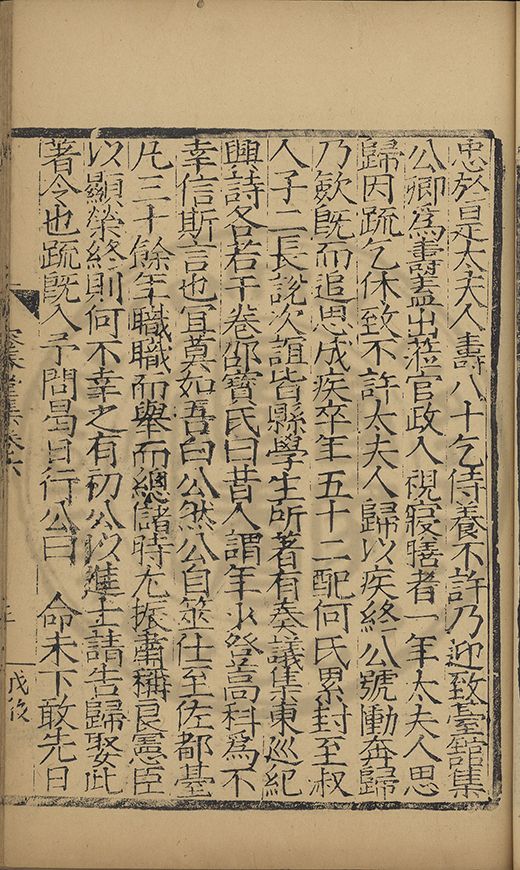 忠於是太夫人壽八十乞侍養不許乃迎致臺館集
公卿爲壽詩蓋出蒞官政入視寢膳者一年太夫人思
歸因疏乞休致不許太夫人歸以疾終公號慟奔歸
乃歛旣而追思成疾卒年五十二配何氏累封至叔
人子二長說次誼皆縣學生所著有奏議集東巡紀
興詩各若干卷邵寶氏曰昔人謂年少登高科爲不
幸信斯言也宜莫如吾白公然公自筮仕至佐都臺
凡三十餘年職職而舉而總儲時尤振肅稱良憲臣
以顯榮終則何不幸之有初公以進士請告歸娶此
著令也疏旣入予問曷日行公曰 命未下敢先日
春堂集卷六
戊後